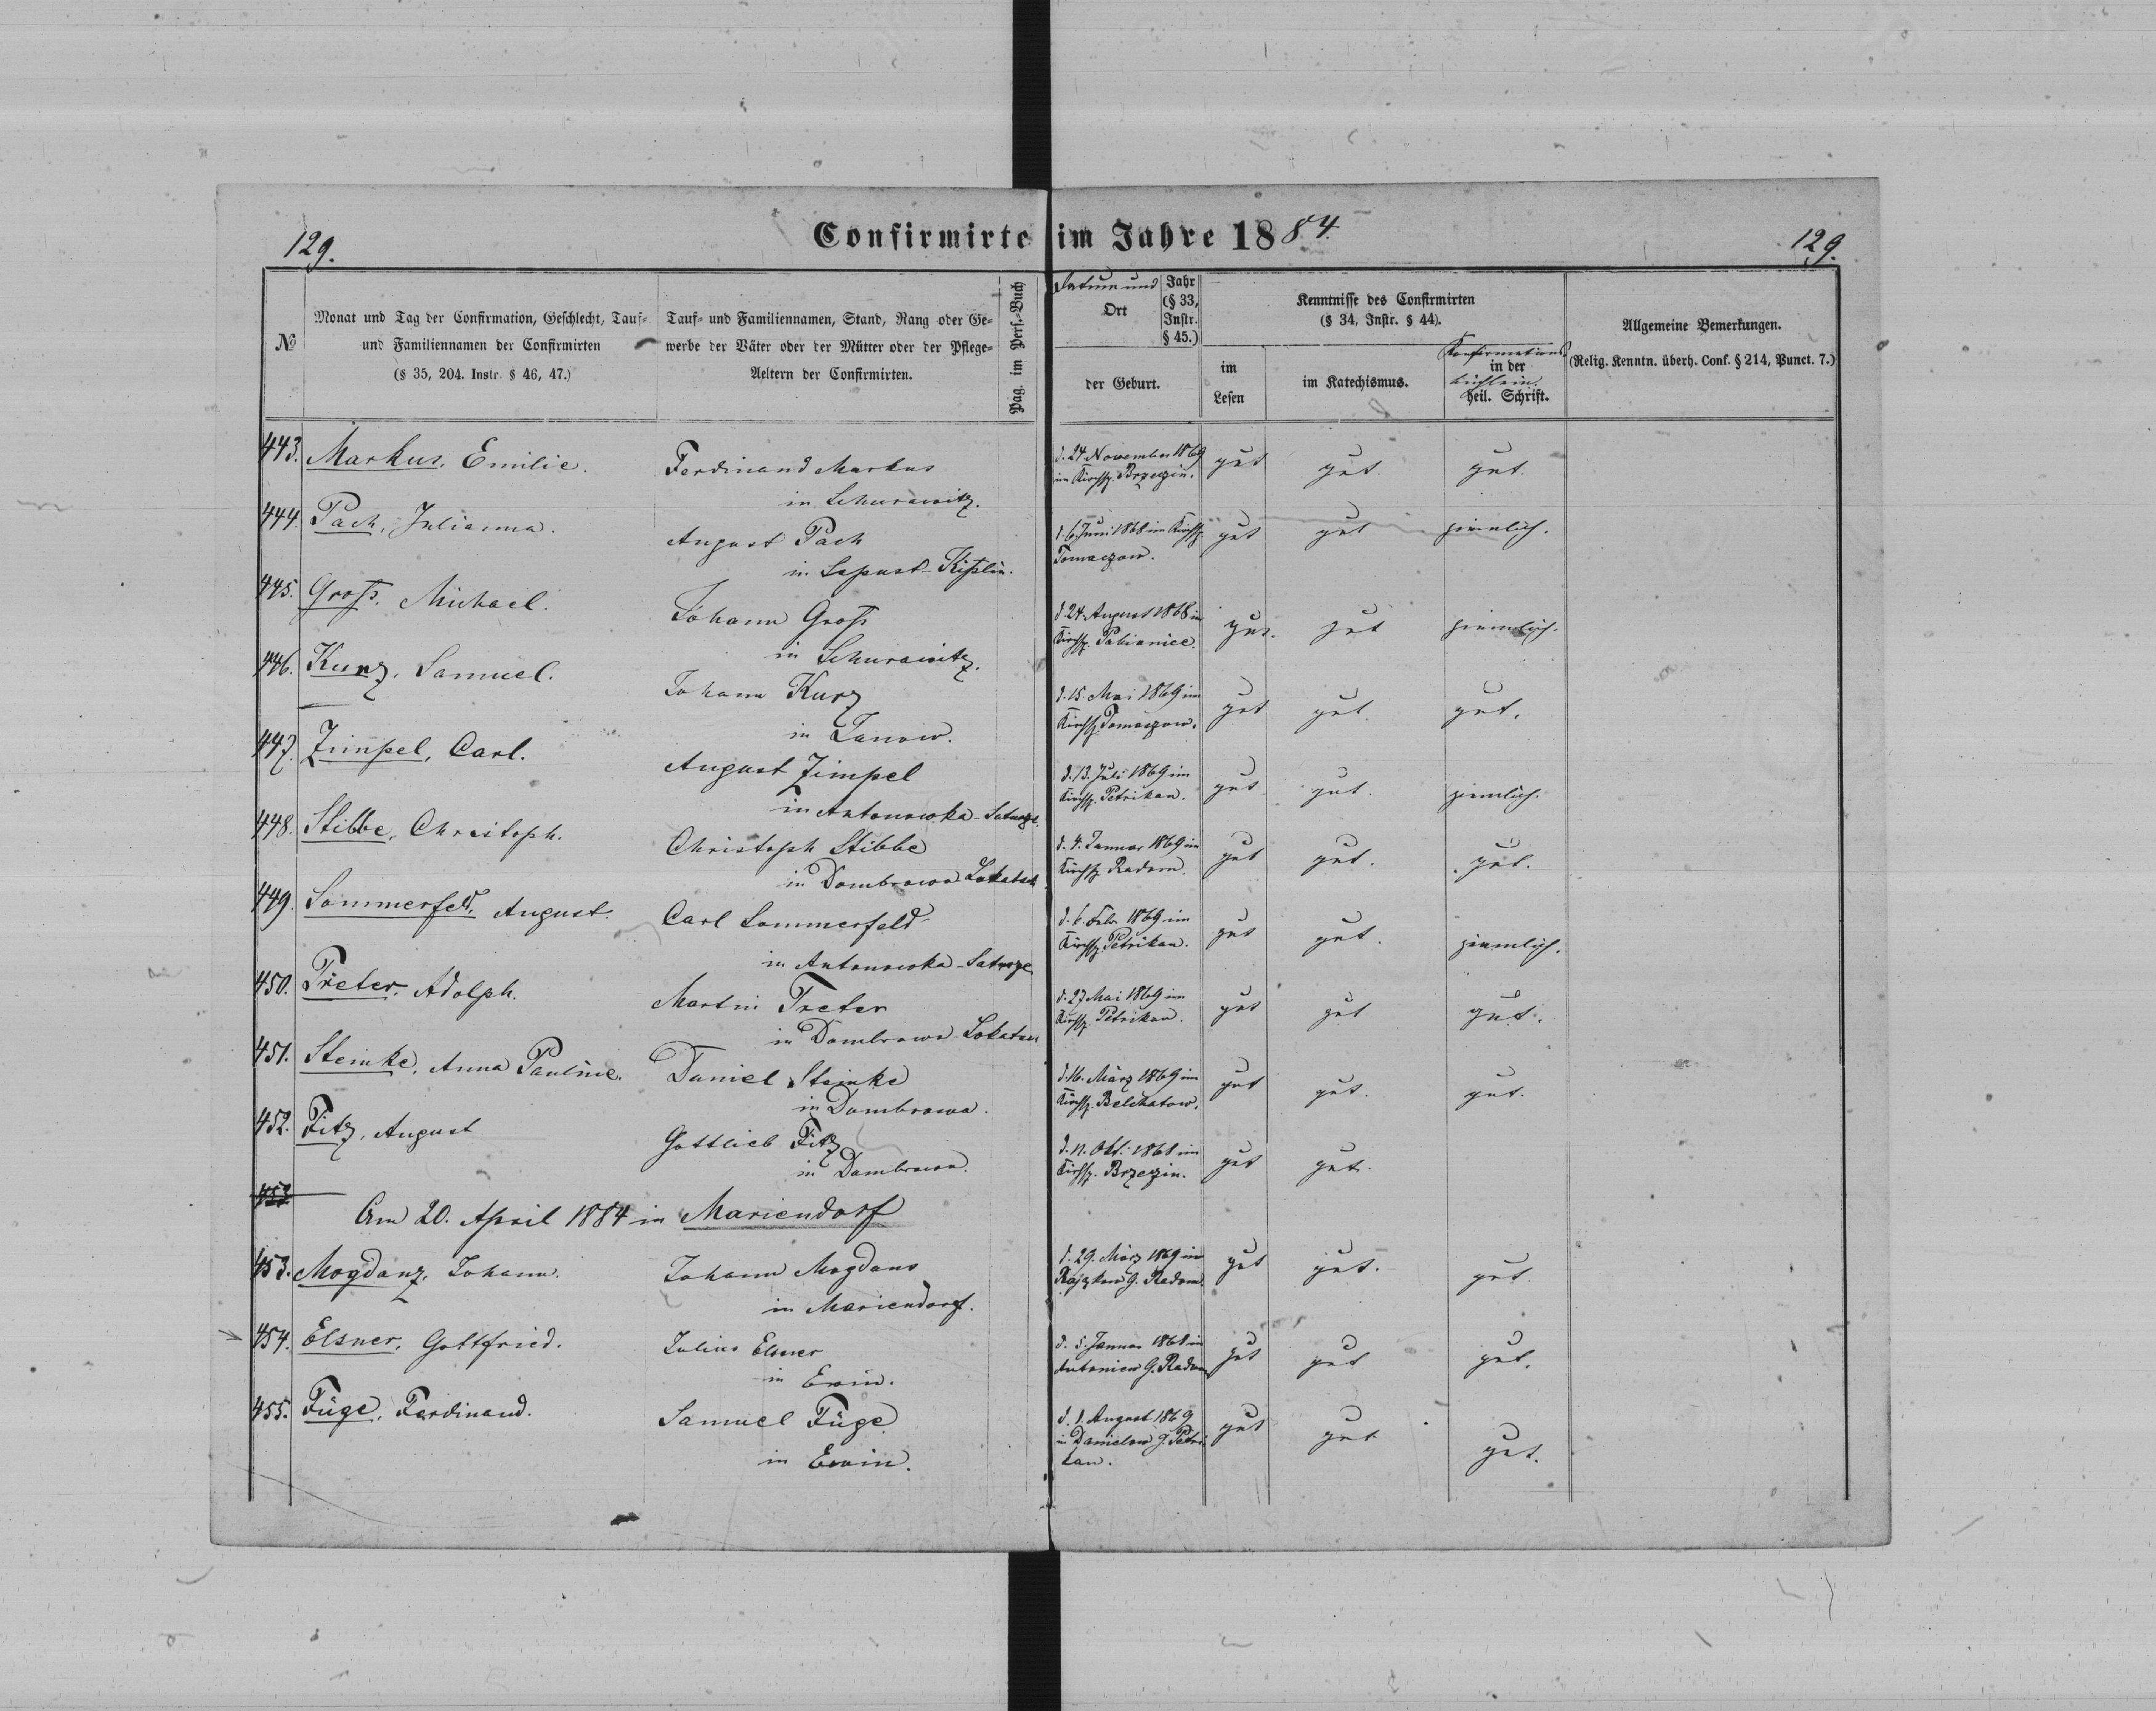 129.
Confirmirte im Jahre 1884.
129.
№
Monat und Tag der Confirmation, Geschlecht, Tauf-
und Familiennamen der Confirmirten
(§ 35, 204. Instr. § 46, 47.)
Tauf- und Familiennamen, Stand, Rang oder Ge-
werbe der Väter oder der Mütter oder der Pflege-
Aeltern der Confirmirten.
Pag. im Pers.-Buch
Datum und
Ort
Jahr
(§ 33,
Instr.
§ 45.)
der Geburt.
Kenntnisse des Confirmirten
(§ 34, Instr. § 44).
im
Lesen
im Katechismus.
Konfirmations
in der
büchlein.
heil. Schrift.
Allgemeine Bemerkungen.
(Relig. Kenntn. überh. Conf. § 214, Punct. 7.)
443. Markus, Emilie.
Ferdinand Markus
in Schurawitz.
d. 24 November 1869
im Kirchsp. Brzezin.
gut
gut.
gut.
444. Pach, Julianna.
August Pach
in
d. 6. Juni 1868 im Kirchsp.
Tomaszow.
gut
gut
ziemlich.
445. Groß, Michael.
Johann Groß
in Schurawitz.
d. 24. August 1868 im
Kirchsp. Pabianice.
gut.
gut
ziemlich.
446. Kurz, Samuel.
Johann Kurz
in Janow.
d. 15. Mai 1869 im
Kirchsp. Tomaszow.
gut
gut.
gut.
447. Zimpel, Carl.
August Zimpel
in Antonowka-
d. 13. Juli 1869 im
Kirchsp. Petrikau.
gut
gut.
ziemlich.
448. Stibbe, Christoph.
Christoph Stibbe
in Dombrowa
d. 4. Januar 1869 im
Kirchsp. Radom.
gut
gut.
gut.
449. Sommerfeld, August.
Carl Sommerfeld
in Antonowka-
d. 6. Febr. 1869 im
Kirchsp. Petrikau.
gut
gut.
ziemlich.
450. Treter, Adolph.
Martin Treter
in Dombrowa-
d. 27 Mai 1869 im
Kirchsp. Petrikau.
gut
gut
gut.
451. Steinke, Anna Pauline.
Daniel Steinke
in Dombrowa.
d. 16. März 1869 im
Kirchsp. Belchatow.
gut
gut.
gut.
452. Fitz, August
Gottlieb Fitz
in Dombrowa.
d. 11. Okt. 1868 im
Kirchsp. Brzezin.
gut
gut.
453
Am 20. April 1884 in Mariendorf
453. Mogdanz, Johann.
Johann Mogdans
in Mariendorf.
d. 29. März 1869 in
G. Radom.
gut
gut.
gut.
454. Elsner, Gottfried.
Julius Elsner
in Ewin.
d. 5. Januar 1868 in
Antoniow G. Radom
gut
gut
gut.
455. Füge, Ferdinand.
Samuel Füge
in Ewin.
d. 1. August 1869
in Danielow G. Petri
kau.
gut
gut
gut.